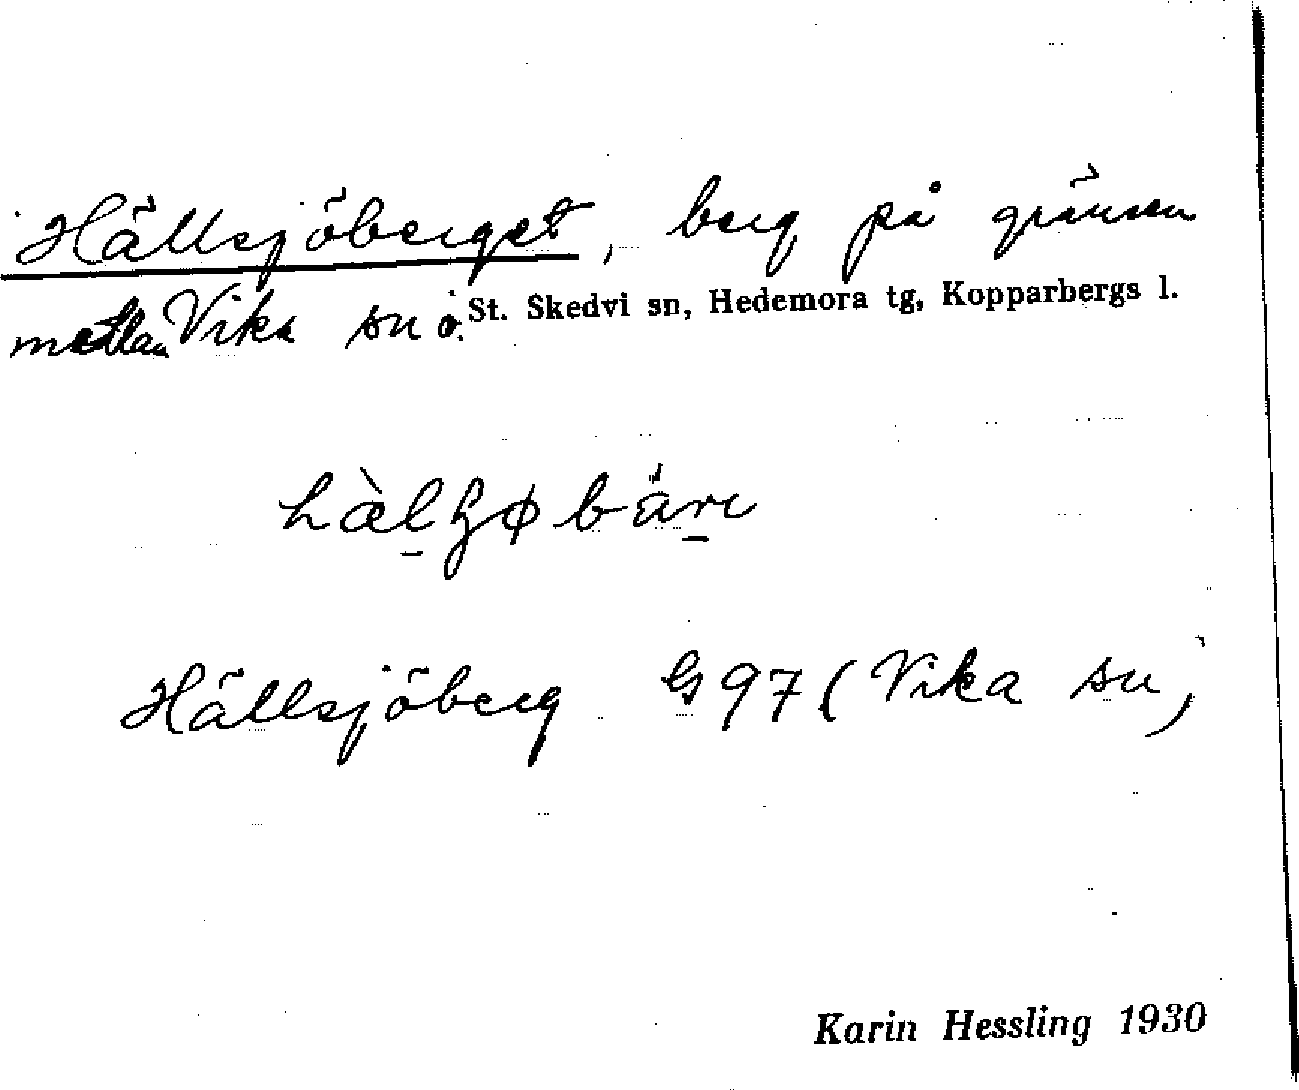 Hällsjöberget, berg på gränsen
mellan Vika sn o. St. Skedvi sn, Hedemora tg, Kopparbergs l.
Hällsjöberg G 97 (Vika sn)
Karin Hessling 1930